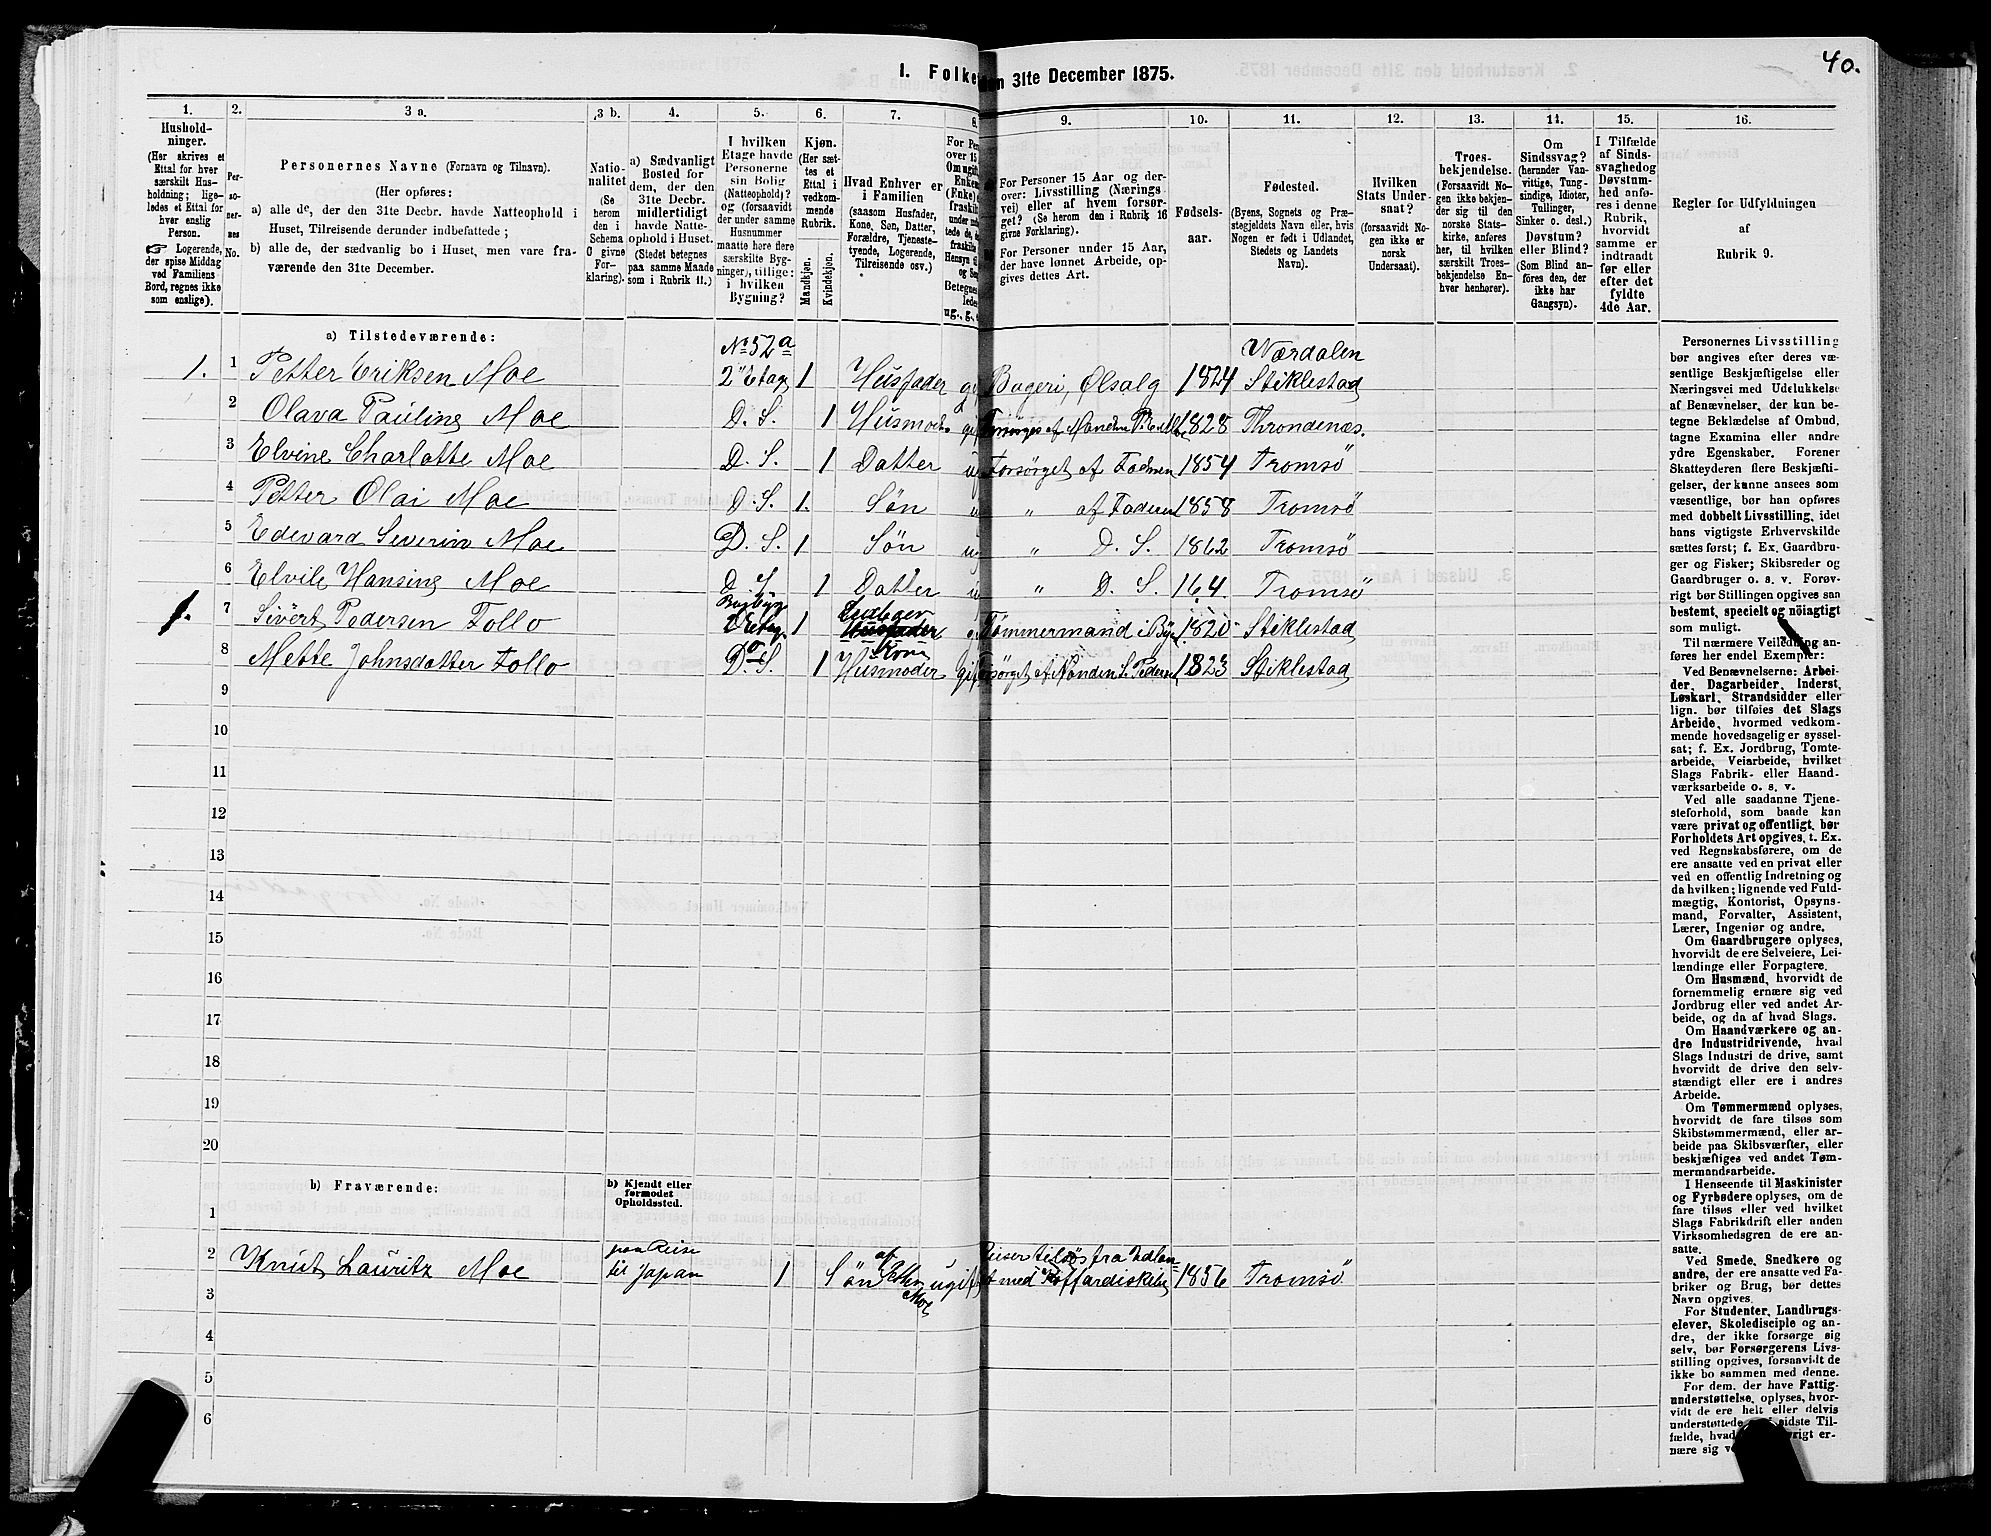 40.
1. Folke den 31te December 1875.
1. 2. 3 a. 3 b. 4. 5. 6. 7. 8. 9. 10. 11. 12. 13. 14. 15. 16.
Hushold-
ninger.
(Her skrives et
Ettal for hver
særskilt Hus-
holdning; lige-
ledes et Ettal for
hver enslig
Person.
Logerende,
der spise Middag
ved Familiens
Bord, regnes ikke
som enslige).
Per-
so-
ner-
nes
No.
Personernes Navne (Fornavn og Tilnavn).
(Her opføres:
a) alle de, der den 31te Decbr. havde Natteophold i
Huset, Tilreisende derunder indbefattede;
b) alle de, der sædvanlig bo i Huset, men vare fra-
værende den 31te December.
Natio-
nalitet
(Se
herom
den i
Schema
O givne
For-
klaring).
a) Sædvanligt
Bosted for
dem, der den
31te Decbr.
midlertidigt
havde Natte-
ophold i Huset.
(Stedet betegnes
paa samme Maade
som i Rubrik 11.)
I hvilken
Etage havde
Personerne
sin Bolig
(Natteophold)?
og (forsaavidt
der under samme
Husnummer
maatte høre flere
særskilte Byg-
ninger), tillige:
i hvilken
Bygning?
Kjøn.
(Her sæt-
tes et
Ettal i
vedkom-
mende
Rubrik.
Mandkjøn.
Kvindekjøn.
Hvad Enhver er
i Familien
(saasom Husfader,
Kone, Søn, Datter,
Forældre, Tjeneste-
tyende, Logerende,
Tilreisende osv.)
For Pe
over 15
Om ugift,
Enkem
(Enke)
under
tede de,
fraskilte
Hensyn til
og
Betegnes
ledes
ug., g.,
For Personer 15 Aar og der-
over: Livsstilling (Nærings
vei) eller af hvem forsør-
get? (Se herom den i Rubrik 16
givne Forklaring).
For Personer under 15 Aar,
der have lønnet Arbeide, op-
gives dettes Art.
Fødsels-
aar.
Fødested.
(Byens, Sognets og Præ-
stegjeldets Navn eller, hvis
Nogen er født i Udlandet,
Stedets og Landets
Navn).
Hvilken
Stats Under-
saat?
(forsaavidt No-
gen ikke er
norsk
Undersaat).
Troes-
bekjendelse.
(Forsaavidt No-
gen ikke bekjen-
der sig til den
norske Stats-
kirke, anføres
her, til hvilken
særskilt Troes-
bekjendelse En-
hver henhører).
Om
Sindssvag?
(herunder Van-
vittige, Tung-
sindige, Idioter,
Tullinger,
Sinker o. desl.)
Døvstum?
eller Blind?
(Som Blind an-
føres den, der
ikke har
Gangsyn).
I Tilfælde
af Sinds-
svaghed og
Døvstum-
hed anfø-
res i denne
Rubrik,
hvorvidt
samme er
indtraadt
før eller
efter det
fyldte
4de Aar.
Regler for Udfyldningen
af
Rubrik 9.
a) Tilstedeværende:
No 52a Værdalen
1. 1 Petter Eriksen Moe 2" Etage 1 Husfader Bageri, Ølsalg 1824 Stiklestad
2 Olava Pauline Moe D. S. 1 Husmod. 1828 Throndenæs.
3 Elvine Charlotte Moe D. S. 1 Datter Forsørget af Faderen 1854 Tromsø
4 Petter Olai Moe D. S. 1. Søn " af Faderen 1858 Tromsø
5 Edevard Severin Moe D. S. 1 Søn " D. S. 1862 Tromsø
6 Elvile Hansine Moe D. S 1 Datter " D. S. 164. Tromsø
1. 7 Sivert Pedersen Follo 1 Husfader Tømmermand i By 1820 Stiklestad
Kone
8 Mette Johnsdatter Follo D. S. 1 Husmoder gift Forsørget af Manden S. Pedersen 1823 Stiklestad
9
10
11
12
13
14
15
16
17
18
19
20
b) Fraværende:
b) Kjendt eller
formodet
Opholdssted.
1
2 Knut Lauritz Moe paa Reise til Japan 1 Søn af Petter Moe ugift Reiser tilsøs fra med Koffardiskibe 1856 Tromsø
3
4
5
6
Personernes Livsstilling
bør angives efter deres væ-
sentlige Beskjæftigelse eller
Næringsvei med Udelukkelse
af Benævnelser, der kun be-
tegne Beklædelse af Ombud,
tagne Examina eller andre
ydre Egenskaber. Forener
Skatteyderen flere Beskjæfti-
gelser, der kunne ansees som
væsentlige, bør han opføres
med dobbelt Livsstilling, idet
hans vigtigste Erhvervskilde
sættes først; f. Ex. Gaardbru-
ger og Fisker; Skibsreder og
Gaardbruger o. s. v. Forøv-
rigt bør Stillingen opgives saa
bestemt, specielt og nøiagtigt
som muligt.
Til nærmere Veiledning an-
føres her endel Exempler:
Ved Benævnelserne: Arbei-
der, Dagarbeider, Inderst,
Løskarl, Strandsidder eller
lign. bør tilføies det Slags
Arbeide, hvormed vedkom-
mende hovedsagelig er syssel-
sat; f. Ex. Jordbrug, Tomte-
arbeide, Veiarbeide, hvilket
Slags Fabrik- eller Haand-
værksarbeide o. s. v.
Ved alle saadanne Tjene-
steforhold, som baade kan
være privat og offentligt, bør
Forholdets Art opgives, t. Ex.
ved Regnskabsførere, om de
ere ansatte ved en privat eller
ved en offentlig Indretning og
da hvilken; lignende ved Fuld-
mægtig, Kontorist, Opsyns-
mand, Forvalter, Assistent,
Lærer, Ingeniør og andre.
Om Gaardbrugere oplyses,
hvorvidt de ere Selveiere, Lei-
lændinge eller Forpagtere.
Om Husmænd, hvorvidt de
fornemmelig ernære sig ved
Jordbrug eller ved andet Ar-
beide, og da af hvad Slags.
Om Haandværkere og an-
dre Industridrivende, hvad
Slags Industri de drive, samt
hvorvidt de drive den selv-
stændigt eller ere i andres
Arbeide.
Om Tømmermænd oplyses,
hvorvidt de fare tilsøs som
Skibstømmermænd, eller ar-
beide paa Skibsværfter, eller
beskjæftiges ved andet Tøm-
mermandsarbeide.
I Henseende til Maskinister
og Fyrbødere oplyses, om de
fare tilsøs eller ved hvilket
Slags Fabrikdrift eller anden
Virksomhedsgren de ere an-
satte.
Ved Smede, Snedkere og
andre, der ere ansatte ved Fa-
briker og Brug, bør dettes
Navn opgives.
For Studenter, Landbrugs-
elever, Skoledisciple og an-
dre, der ikke forsørge sig
selv, bør Forsørgerens Livs-
stilling opgives, forsaavidt de
ikke bo sammen med denne.
For dem, der have Fattig-
understøttelse, oplyses, hvor-
vidt de ere helt eller delvis
understøttede sidste Til-
fælde, hvad øvrigt er-
nære sig